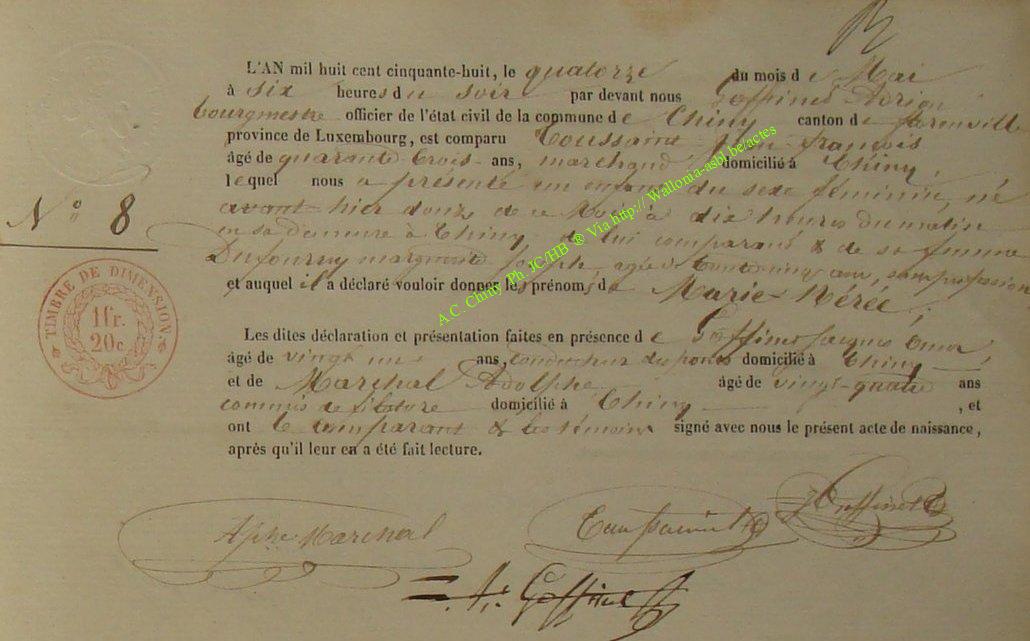 L'AN mil huit cent cinquante-huit, le quatorze du mois de Mai
à six heures du soir par devant nous Goffinet Adrien
bourgmestre officier de l'état civil de la commune de Chiny canton de florenville
province de Luxembourg, est comparu Toussaint Jean françois
âgé de quarante trois ans, marchand domicilié à Chiny,
lequel nous a présenté un enfant du sexe féminin, né
avant-hier douze de ce Mois à dix heures du matin
en sa demeure à Chiny de lui comparant & de sa femme
Dufourny marguerite Joseph, agée de trente cinq ans, sans profession
et auquel il a déclaré vouloir donner les prénoms de Marie Nérée;
N° 8
TIMBRE DE DIMENSION
1 fr.
20 c.
Les dites déclaration et présentation faites en présence de Goffinet Jacques
âgé de vingt un ans, conducteur des ponts domicilié à Chiny
et de Marchal Adolphe âgé de vingt-quatre ans
commis de domicilié à Chiny , et
ont le comparant & les témoins signé avec nous le présent acte de naissance,
après qu'il leur en a été fait lecture.
Aphe Marchal
Toussaint
Goffinet
A. Goffinet
A.C. Chiny Ph. JC/HB ® Via http:// Wallonia-asbl.be/actes